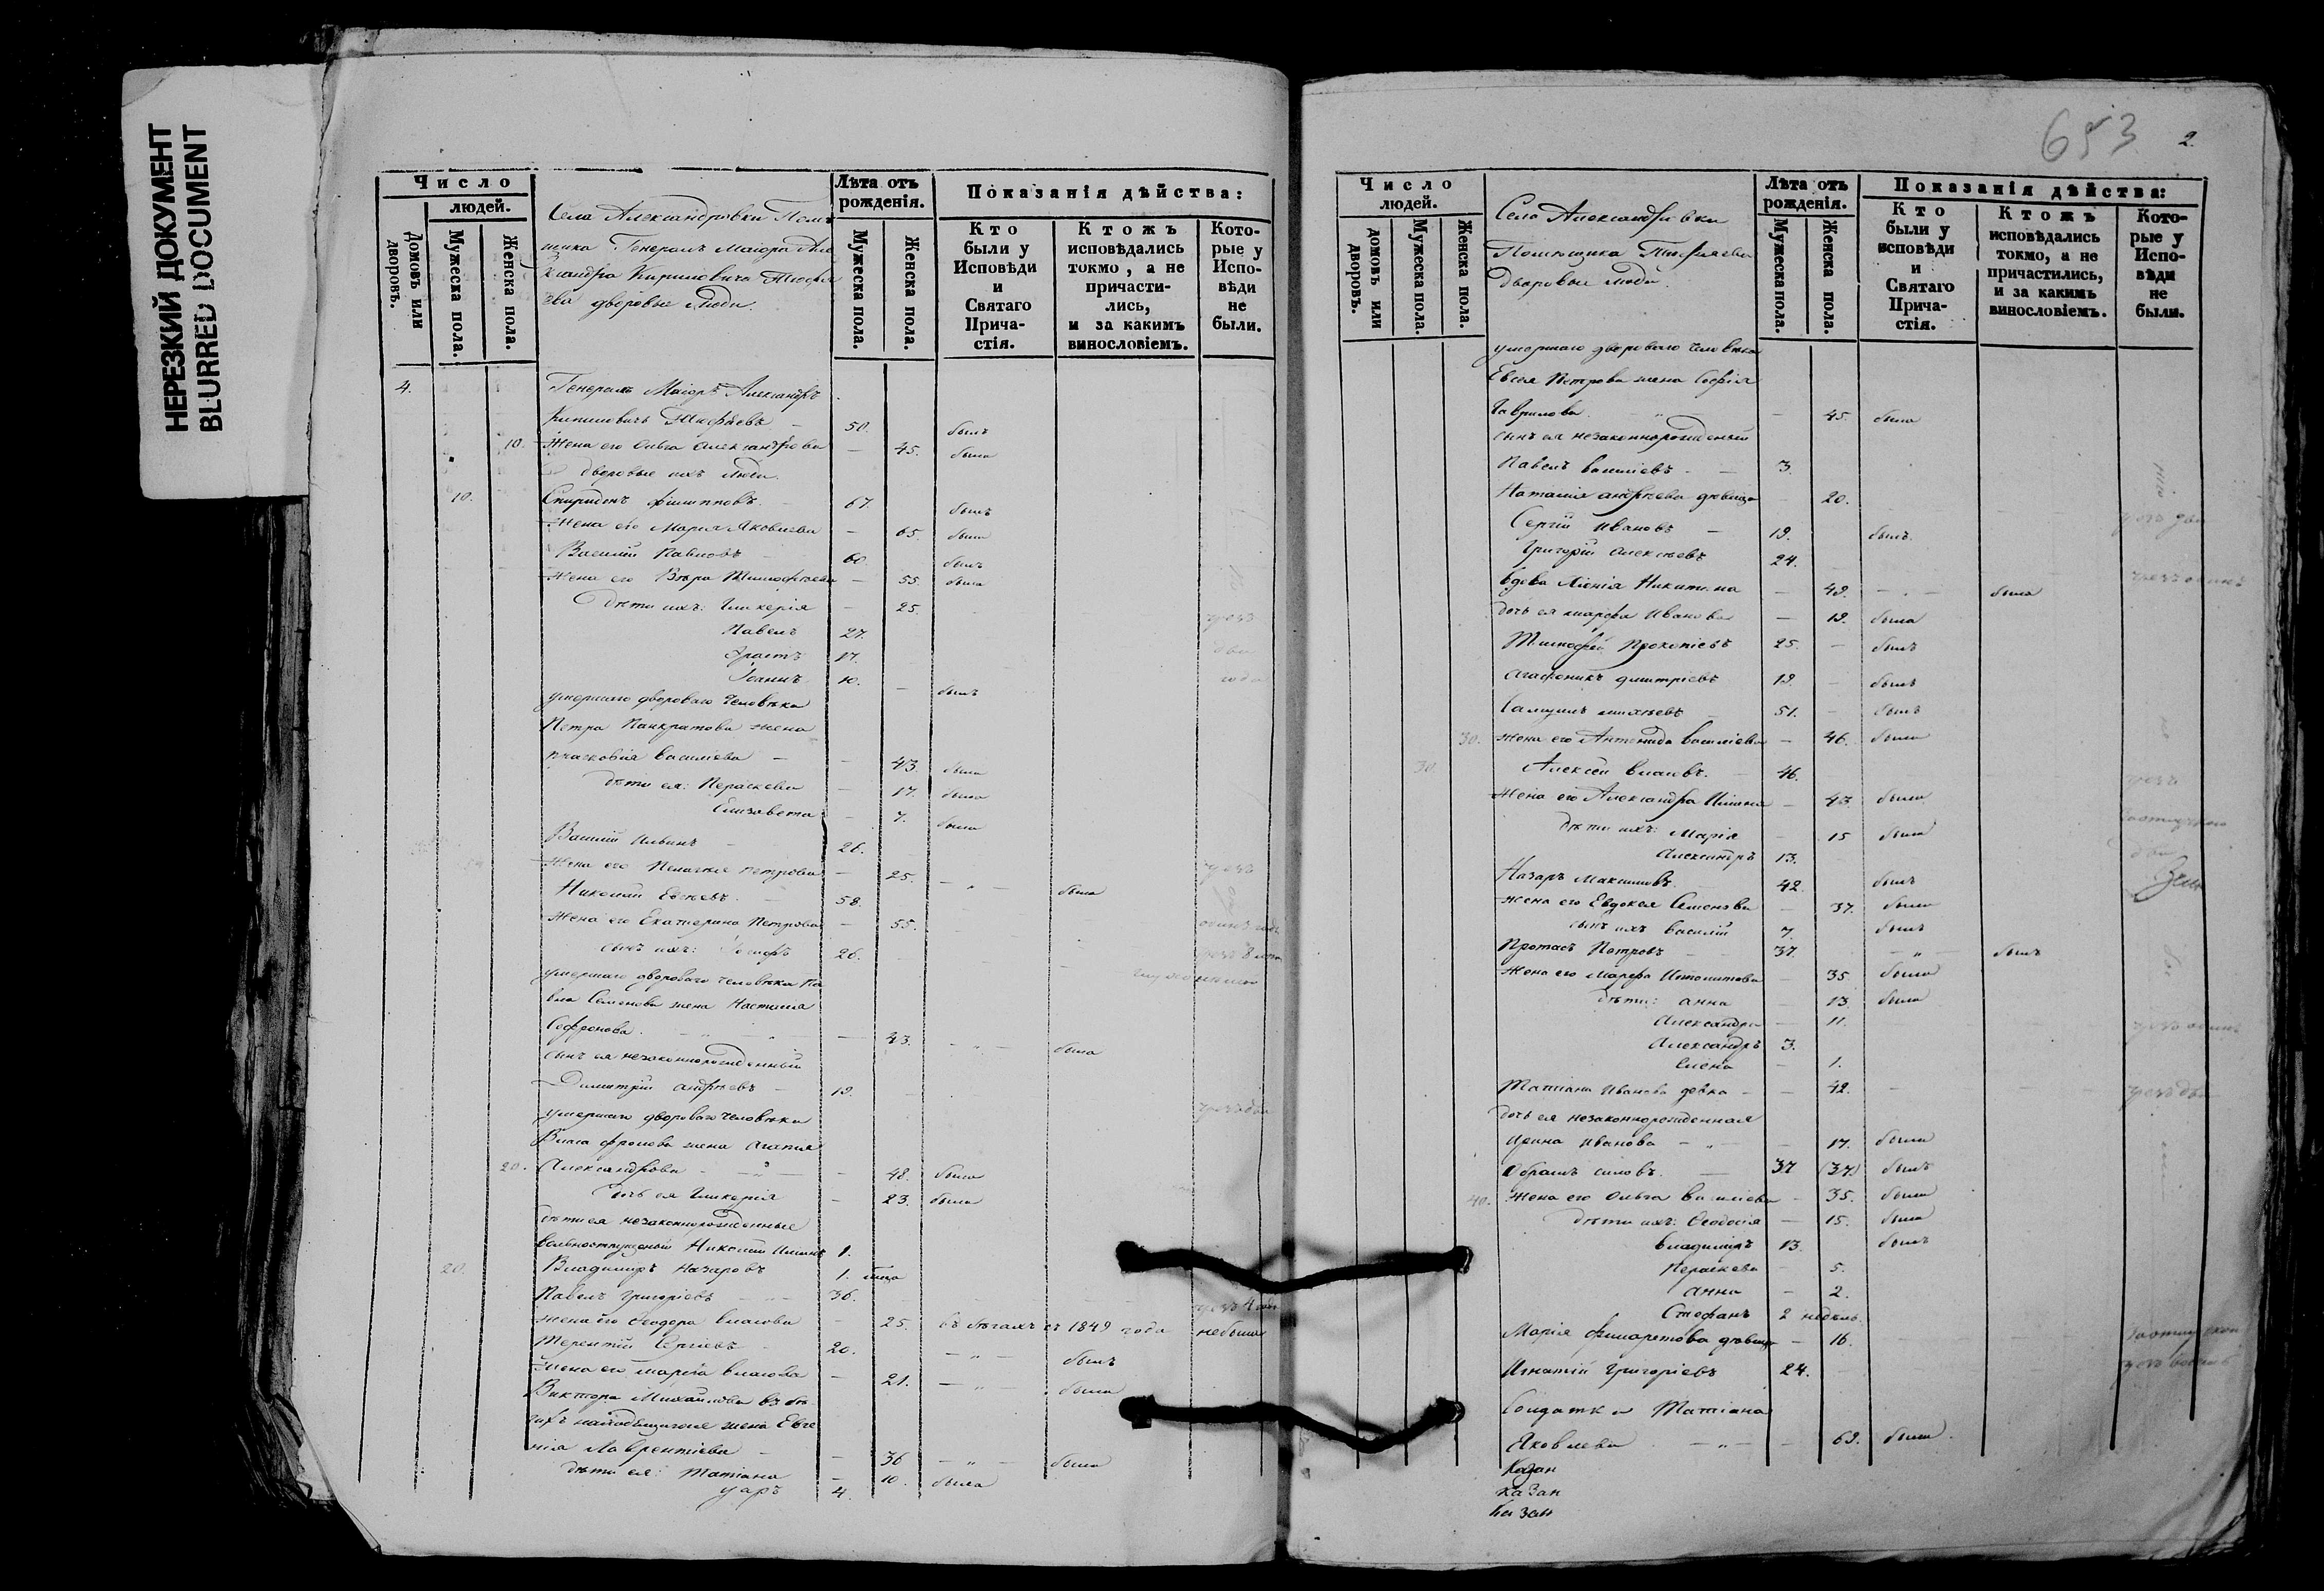 НЕРЕЗКИЙ ДОКУМЕНТ
BLURRED DOCUMENT
Число
людей.
Домовъ или дворовъ.
Мужеска пола.
Женска пола.
Села Александровки Помѣ
щика Генералъ Маіора Але
ксандра Кириловича
дворовые люди.
Лѣта отъ рожденія.
Мужеска пола.
Женска пола.
Показанія дѣйства:
Кто были у Исповѣди и Святаго Прича-стія.
Ктожъ исповѣдались токмо, а не причасти-лись, и за какимъ винословіемъ.
Кото-рые у Испо-вѣди не были.
4. Генералъ Маіоръ Александръ
Кириловичъ 50. былъ
10. Жена его Ольга Александрова — 45. была
дворовые ихъ люди.
10. Спиридонъ Филипповъ 67. былъ
Жена его Марія Яковлева — 65. была
Василій Павловъ 60. былъ
Жена его Вѣра Тимофѣева — 55. была
дѣти ихъ: Гликерія — 25. чрезъ
Павелъ 27. два
Эрастъ 17. года
Іоаннъ 10. — былъ
умершаго двороваго человѣка
Петра Панкратова жена
Прасковія Василіева — — 43. была
дѣти ея: Параскева — 17. была
Елизавета — 7. была
Василій Ильинъ 26.
Жена его Пелагія Петрова — 25. — „ — была чрезъ
Николай Евсѣевъ 58.
Жена его Екатерина Петрова — 55. одинъ годъ
сынъ ихъ: Іосифъ 26.
умершаго двороваго человѣка Па
вла Семенова жена Настасія
Софронова — 43. — „ — была
сынъ ея незаконнорожденный
Димитрій Андреевъ — 19.
умершаго двороваго человѣка чрезъ два
Власа Фролова жена Агапія
20. Александрова — „ — — 48. была
дочь ея Гликерія — 23. была
дѣти ея незаконнорожденные
вольноотпущеный Николай 1.
20. Владимиръ Назаровъ 1. года
Павелъ Григоріевъ 36. чрезъ 4 года
жена его Ѳеодора Власова — 25. въ бѣгахъ съ 1849 года не была
Терентій Сергіевъ 20. — „ — былъ
жена его Марѳа Власова — 21. — „ — была
Виктора Михайлова въ бѣ
гахъ находящагося жена Евге
нія Лаврентіева — 36 — „ — была
дѣти ея: Татіана — 10. была
4.
653
2.
Число людей.
домовъ или дворовъ.
Мужеска пола.
Женска пола.
Села Александровки
Помѣщика
Дворовые люди.
Лѣта отъ рожденія.
Мужеска пола.
Женска пола.
Показанія дѣйства:
Кто были у исповѣди и Святаго Прича-стія.
Ктожъ исповѣдались токмо, а не причастились, и за какимъ винословіемъ.
Кото-рые у Испо-вѣди не были.
умершаго двороваго человѣка
Евсея Петрова жена Софія
Гаврилова — „ — — 45. была
сынъ ея незаконнорожденный
Павелъ Василіевъ — 3.
Наталія Андреева дѣвица 20. чрезъ два
Сергій Ивановъ — 19. былъ.
Григорій Алексѣевъ 24. чрезъ одинъ
Вдова Ксенія Никитина — 49. — „ — была
дочь ея Марѳа Иванова — 19. была
Тимофей Прокопіевъ 25. — былъ
Агафоникъ Димитріевъ 19. — былъ
Самуилъ Михѣевъ 51. — былъ
30. жена его Антонида Василіева — 46. была
30. Алексѣй Власовъ. 46. чрезъ
Жена его Александра Ильина — 43. была
дѣти ихъ: Марія — 15 была
Александръ 13. два
Назаръ Максимовъ 42. былъ
жена его Евдокія Семенова — 37. была
сынъ ихъ Василій 7. былъ
Протасъ Петровъ 37. — „ — былъ
жена его Марѳа — 35. была
дѣти: Анна — 13. была
Александра — 11. чрезъ одинъ
Александръ 3.
Елена — 1.
Татіана Иванова девка — — 42. чрезъ два
дочь ея незаконнорожденная
Ирина Иванова — „ — — 17. была
Абрамъ Силовъ. — 37 (37.) былъ
40. жена его Ольга Василіева — 35. была
дѣти ихъ: Ѳеодосія — 15. была
Владимиръ 13. былъ
Параскева — 5.
Анна — 2.
Стефанъ 2 недѣль.
Марія Филаретова дѣвица — 16.
Игнатій Григоріевъ 24.
Солдатка Татіана
Яковлева — „ — — 69. была.
Казан
казан
Казан